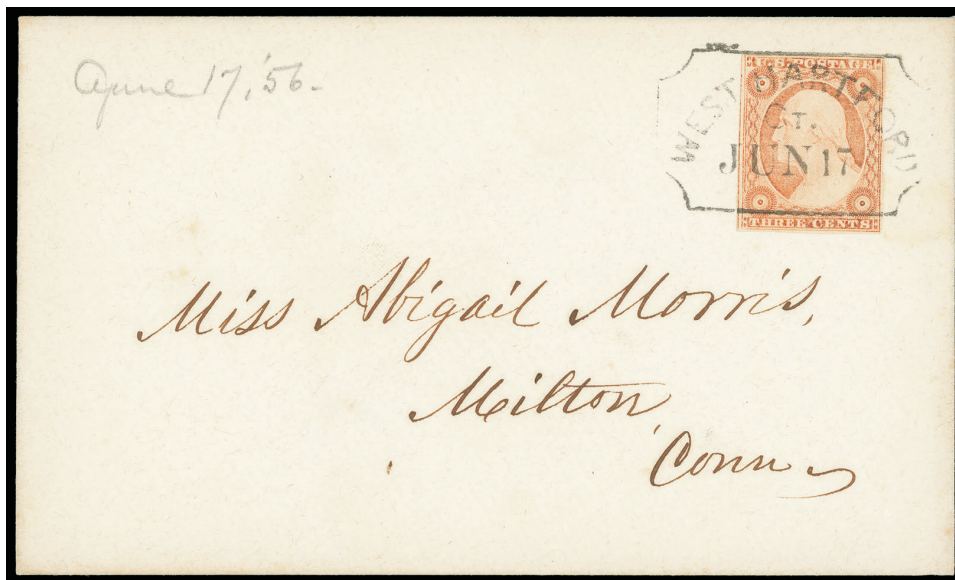 June 17, '56.
U.S. POSTAGE
WEST HARTFORD
CT.
JUN 17
THREE CENTS
Miss Abigail Morris,
Milton,
Conn